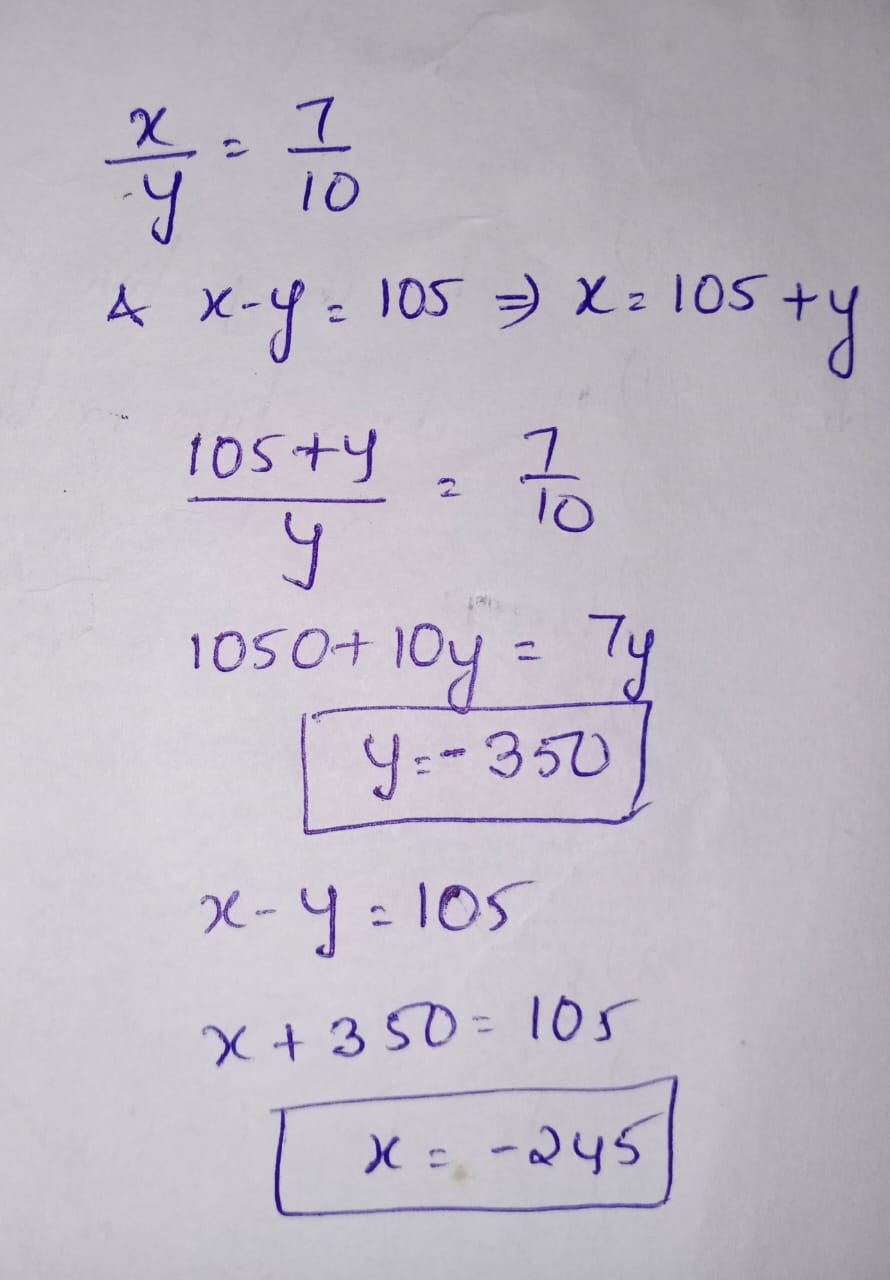 x/y = 7/10
& x-y = 105 ⇒ x = 105 + y
105+y/y = 7/10
1050+10y = 7y
y = -350
x-y = 105
x+350 = 105
x = -245